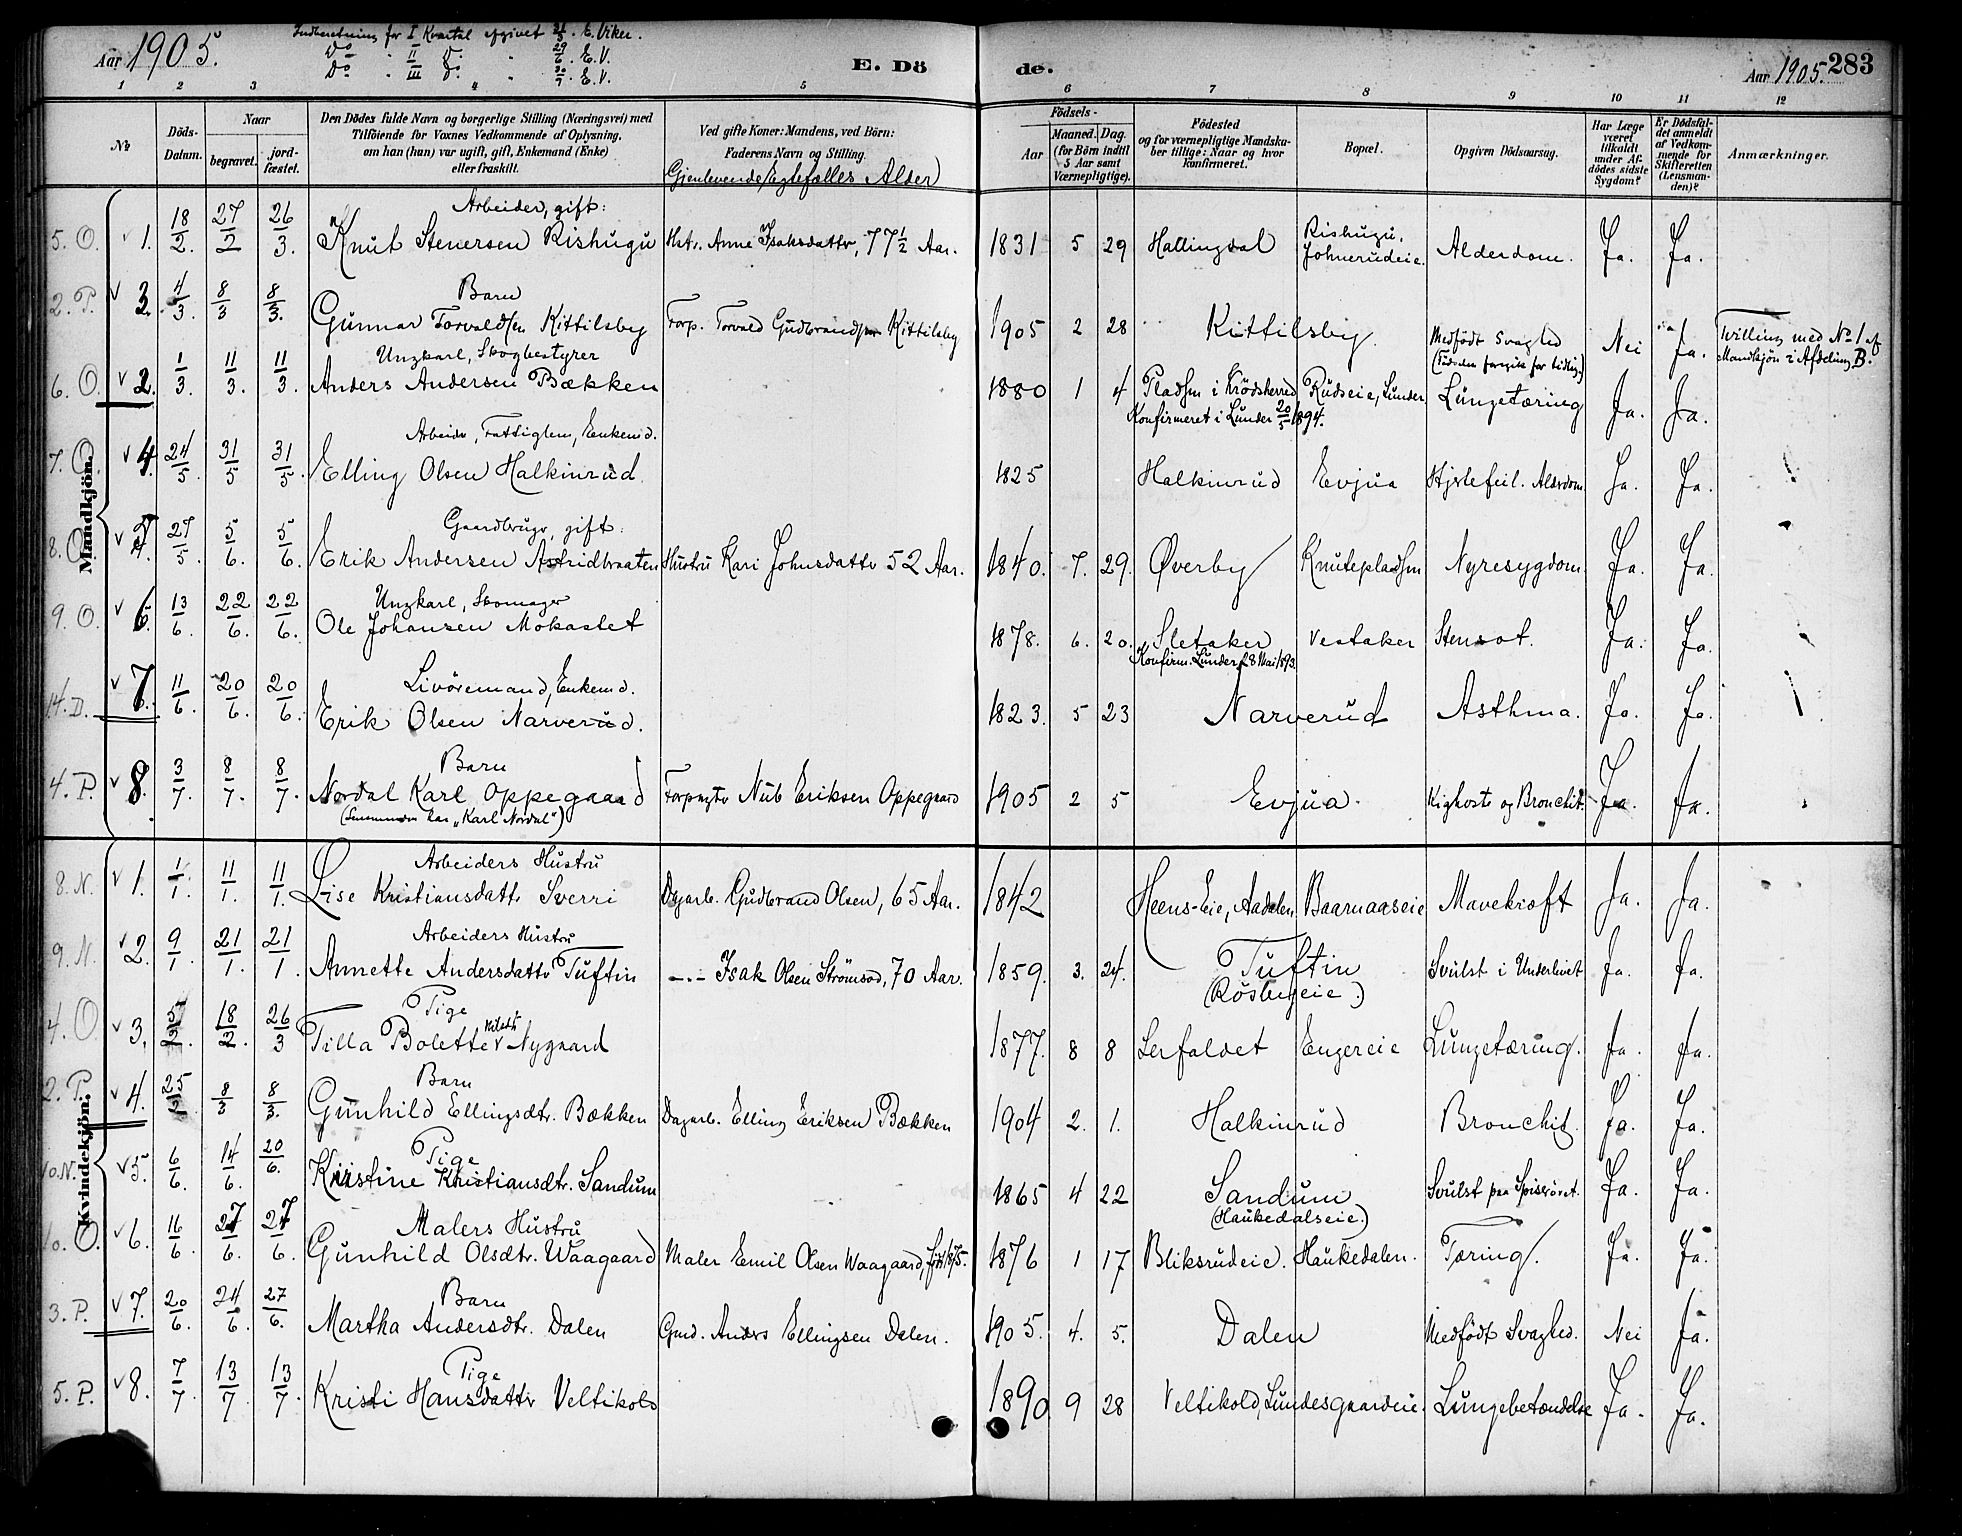 Aar 1905.
Indberetning for I Kvartal afgivet E. Viker.
Do II Do 29/6. E.V.
Do III Do 30/9. E.V.
E. Dö
de.
Aar 1905. 283
1 2 3 4 5 6 7 8 9 10 11 12
No
Döds-Datum.
Naar
begravet.
jord-fæstet.
Den Dödes fulde Navn og borgerlige Stilling (Næringsvei) med
Tilföiende for Voxnes Vedkommende af Oplysning,
om han (hun) var ugift, gift, Enkemand (Enke)
eller fraskilt.
Ved gifte Koner: Mandens, ved Börn:
Faderens Navn og Stilling.
Gjenlevende Egtefælles Alder
Födsels-
Aar
Maaned. Dag.
(for Börn indtil
5 Aar samt
Værnepligtige).
Födested
og for værnepligtige Mandska-
ber tillige: Naar og hvor
konfirmeret.
Bopæl.
Opgiven Dödsaarsag.
Har Læge
været
tilkaldt
under Af-
dödes sidste
Sygdom?
Er Dödsfal-
det anmeldt
af Vedkom-
mende for
Skifteretten
(Lensman-
den)?
Anmærkninger.
Mandkjön.
5. O. v 1. 18/2. 27/2 26/3. Arbeider, gift:
Knut Stenersen Rishugu Hstr. Anne Isaksdattr, 77 1/2 Aar. 1831 5 29 Hallingdal Rishugu, Johnerudeie. Alderdom. Ja. Ja.
2. P. v 3. 4/3. 8/3 8/3. Barn
Gunnar Torvaldsen Kittilsby Forp. Torvald Gudbrandsen Kittilsby 1905 2 28 Kittilsby. Medfödt Svaghed (Födselen foregik for tidlig.) Nei Ja. Tvilling med No 1 af Mandkjön i Afdeling B.
6. O. v 2. 1/3. 11/3. 11/3. Ungkarl, Skogbestyrer
Anders Andersen Bækken 1880 1 4 Pladsen i Krödsherred Rudseie, Lunder Lungetæring Ja. Ja.
Konfirmeret i Lunder 20/5 1894.
7. O. v 4. 24/5. 31/5 31/5. Arbeidr, Fattiglem, Enkemd.
Elling Olsen Halkinrud 1825 Halkinrud Evjua Hjertefeil. Alderdom Ja. Ja.
8. O. v 5. 27/5. 5/6. 5/6. Gaardbrugr, gift:
Erik Andersen Astridbraaten Hustru Kari Johnsdattr 52 Aar. 1840. 7. 29. Øverby Knutepladsen Nyresygdom. Ja. Ja.
9. O. v 6. 13/6. 22/6. 22/6. Ungkarl, Skomager
Ole Johansen Mokastet 1878. 6. 20. Sletaker Vestaker Stensot. Ja. Ja.
Konfirm. Lunder 28 Mai 1893.
14. D. v 7. 11/6. 20/6. 20/6. Livöremand, Enkemd.
Erik Olsen Narverud. 1823. 5 23 Narverud Asthma. Ja. Ja.
4. P. v 8. 3/7. 8/7. 8/7. Barn
Nordal Karl Oppegaard Forpagtr Nub Eriksen Oppegaard 1905 2 5 Evjua. Kighoste og Bronchit. Ja. Ja.
(Lensmanden har "Karl Nordal")
Kvindekjön.
8. N. v 1. 1/1. 11/1. 11/1. Arbeiders Hustru
Lise Kristiansdattr Sverri Dagarb. Gudbrand Olsen, 65 Aar. 1842 Heens-Eie, Aadalen Baarnaaseie Mavekræft Ja. Ja.
9. N. v 2. 9/1. 21/1. 21/1. Arbeiders Hustru
Annette Andersdattr Tuftin -.- Isak Olsen Strömsod, 70 Aar. 1859. 3. 24. Tuftin Svulst i Underlivet Ja. Ja.
(Rösbergeie.)
4. O v 3. 5/2. 18/2. 26/3 Pige
Tilla Bolette Nygaard 1877. 8 8 Lerfaldet Engereie Lungetæring. Ja. Ja.
2. P. v 4. 25/2 8/3 8/3. Barn
Gunhild Ellingsdtr. Bækken Dagarb. Elling Eriksen Bækken 1904 2. 1. Halkinrud Bronchit. Ja. Ja.
10. N. v 5. 6/6. 14/6. 20/6. Pige
Kristine Kristiansdtr. Sandum 1865 4 22 Sandum Svulst paa Spiserøret. Ja. Ja.
(Haukedalseie.)
10. O. v 6. 16/6. 27/6. 27/6. Malers Hustru
Gunhild Olsdtr. Waagaard Maler Emil Olsen Waagaard, födt 1875. 1876 1 17 Bliksrudeie. Haukedalen. Tæring. Ja. Ja.
3. P. v 7. 20/6. 24/6. 27/6. Barn
Martha Andersdtr. Dalen Gmd. Anders Ellingsen Dalen. 1905. 4. 5. Dalen Medfödt Svaghed. Nei Ja.
5. P. v 8. 7/7. 13/7 13/7. Pige
Kristi Hansdattr Veltikold 1890 9 28 Veltikold, Lundesgaardeie. Lungebetændelse Ja. Ja.